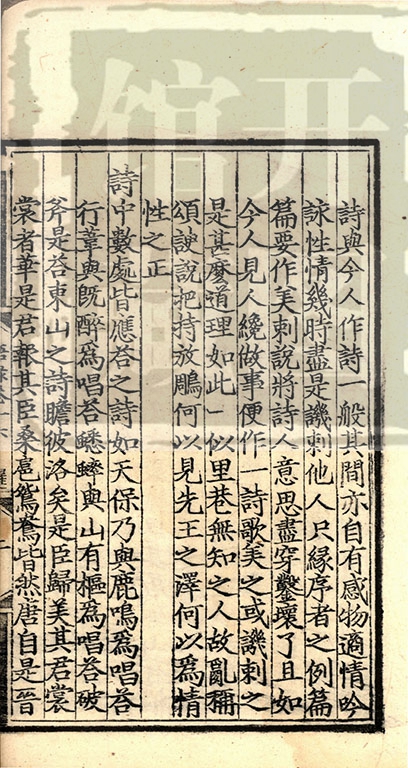 詩與今人作詩一般其間亦自有感物適情吟
詠性情幾時盡是譏刺他人只緣序者之例篇
篇要作美刺說將詩人意思盡穿鑿壞了且如
今人見人纔做事便作一詩歌美之或譏刺之
是甚麼道理如此一似里巷無知之人故亂稱
頌諛說把持放鵰何以見先王之澤何以為情
性之正
詩中數處皆應荅之詩如天保乃與鹿鳴為唱荅
行葦與旣醉為唱荅蟋蟀與山有樞為唱荅破
斧是荅東山之詩瞻彼洛矣是臣歸美其君裳
裳者華是君報其臣桑扈鴛鴦皆然唐自是晉